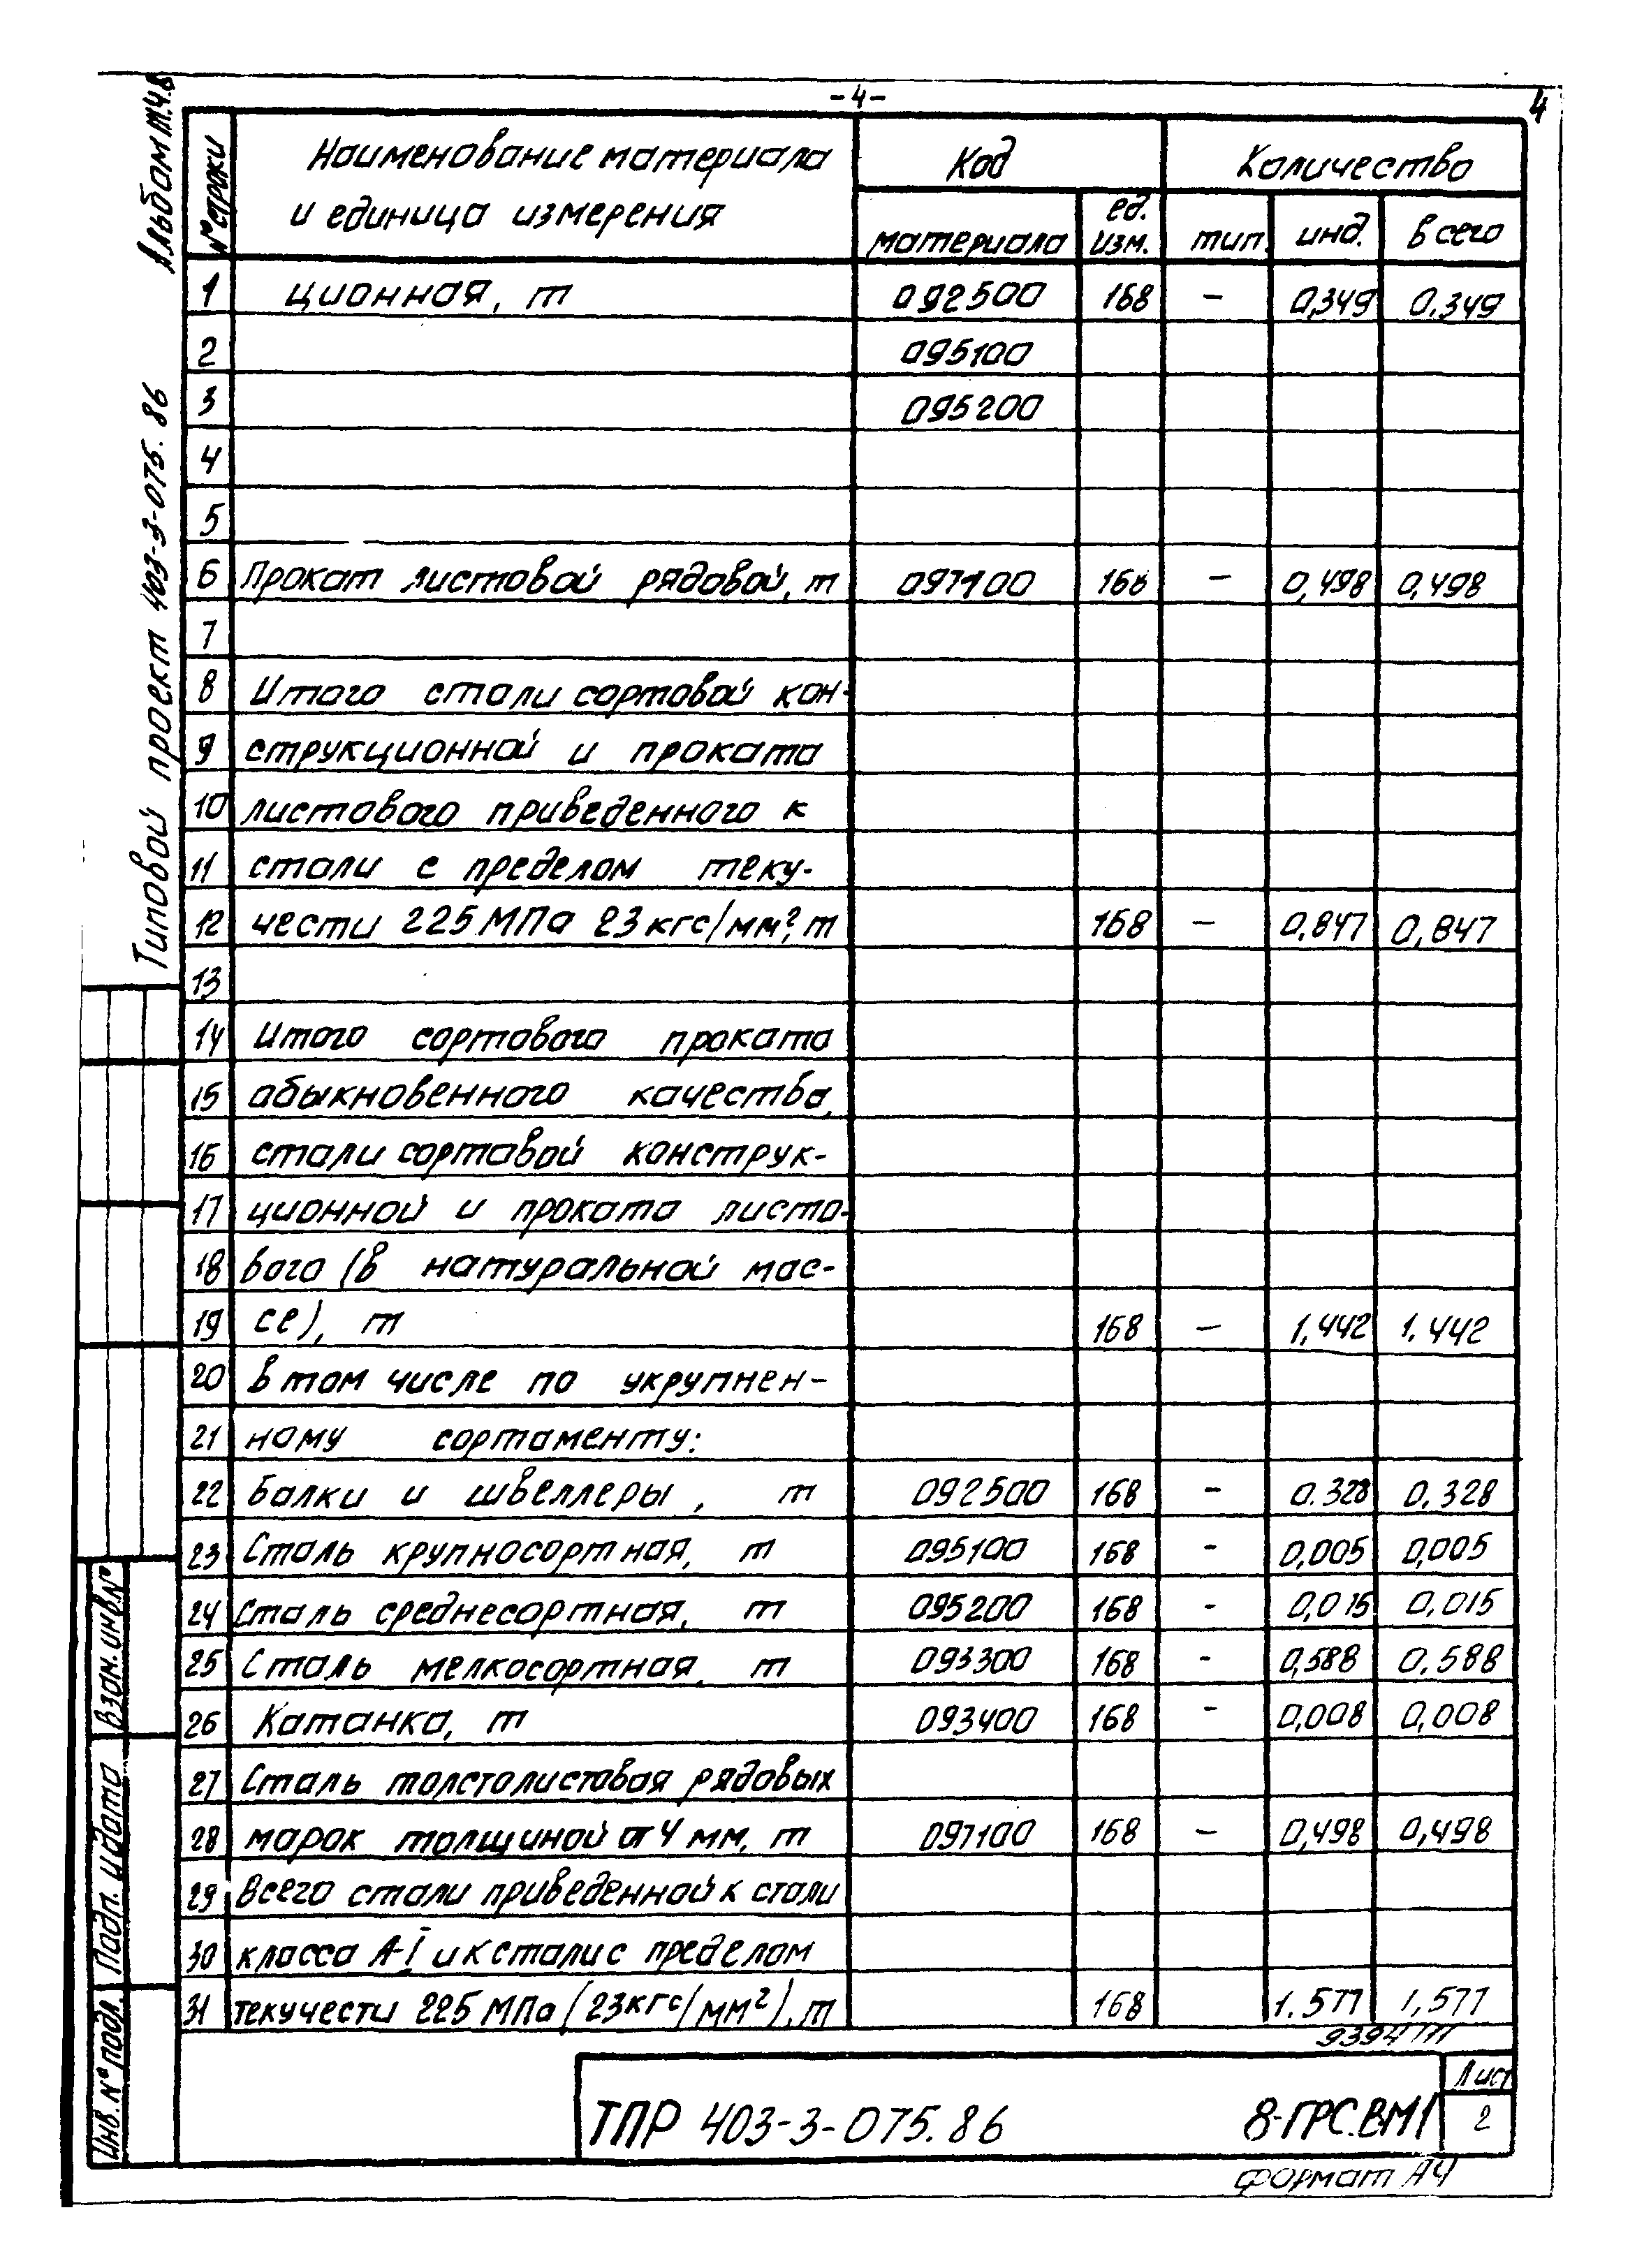 -4-
4
Альбом
Типовой проект 403-3-075.86
№ строки
Наименование материала
и единица измерения
Код
Количество
материала
ед.
изм.
тип.
инд.
всего
1 ционная, т 092500 168 - 0,349 0.349
2 095100
3 095200
4
5
6 Прокат листовой рядовой, т 097100 168 - 0,498 0,498
7
8 Итого стали сортовой кон-
9 струкционной и проката
10 листового приведенного к
11 стали с пределом теку-
12 чести 225 МПа 23 кгс/мм², т 168 - 0,847 0,847
13
14 Итого сортового проката
15 обыкновенного качества,
16 стали сортовой конструк-
17 ционной и проката листо-
18 вого (в натуральной мас-
19 се), т 168 - 1,442 1.442
20 В том числе по укрупнен-
21 ному сортаменту:
22 Балки и швеллеры, т 092500 168 - 0.328 0,328
23 Сталь крупносортная, т 095100 168 - 0,005 0,005
24 Сталь среднесортная, т 095200 168 - 0,015 0,015
25 Сталь мелкосортная, т 093300 168 - 0,588 0.588
26 Катанка, т 093400 168 - 0,008 0,008
27 Сталь толстолистовая рядовых
28 марок толщиной от 4 мм, т 097100 168 - 0,498 0,498
29 Всего стали приведенной к стали
30 класса А-I и к стали с пределом
31 текучести 225 МПа (23 кгс/мм²), т 168 1.577 1,577
Взам. инв.№
Подп. и дата
Инв. № подл.
ТПР 403-3-075.86
8-ГРС.ВМ1
Лист
2
формат А4